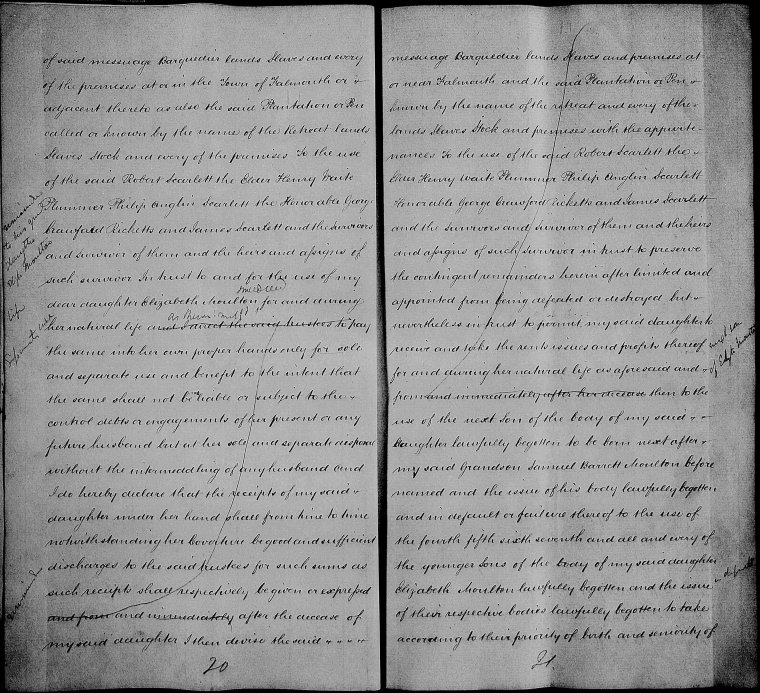 of said messuage Barquedier lands Slaves and every
of the premises at or in the Town of Falmouth or
adjacent thereto as also the said Plantation or Pen
called or known by the name of the Retreat lands
Slaves Stock and every of the premises To the use
of the said Robert Scarlett the Elder Henry Waite
Plummer Philip Anglin Scarlett the Honorable George
Crawford Ricketts and James Scarlett and the Survivors
and Survivor of them and the heirs and assigns of
such survivor In trust to and for the use of my
dear daughter Elizabeth Moulton for and during
her natural life and I direct the said trustees to pay
the same into her own proper hands only for sole
and separate use and benefit to the intent that
the same shall not be liable or subject to the
control debts or engagements of her present or any
future husband but at her sole and separate disposal
without the intermeddling of any husband And
I do hereby declare that the receipts of my said
daughter under her hand shall from time to time
notwithstanding her Coverture be good and sufficient
discharges to the said trustees for such sums as
such receipts shall respectively be given or expressed
and from and immediately after the decease of
my said daughter I then devise the said
20
remainder
to his
daughter
Moulton
life
remainder
messuage Barquedier lands Slaves and premises at
or near Falmouth and the said Plantation or Pen
known by the name of the retreat and every of the
lands Slaves Stock and premises with the appurte-
nances To the use of the said Robert Scarlett the
Elder Henry Waite Plummer Philip Anglin Scarlett
Honorable George Crawford Ricketts and James Scarlett
and the Survivors and Survivor of them and the heirs
and assigns of such Survivor in trust to preserve
the contingent remainders herein after limited and
appointed from being defeated or destroyed but
nevertheless in trust to permit my said daughter to
receive and take the rents issues and profits thereof
for and during her natural life as aforesaid and
from and immediately after her decease then to the
use of the next Son of the body of my said
Daughter lawfully begotten to be born next after
my said Grandson Samuel Barrett Moulton before
named and the issue of his body lawfully begotten
and in default or failure thereof to the use of
the fourth fifth sixth seventh and all and every of
the younger Sons of the body of my said daughter
Elizabeth Moulton lawfully begotten and the issue
of their respective bodies lawfully begotten to take
according to their priority of birth and seniority of
21
next son
of Eliz. Moulton